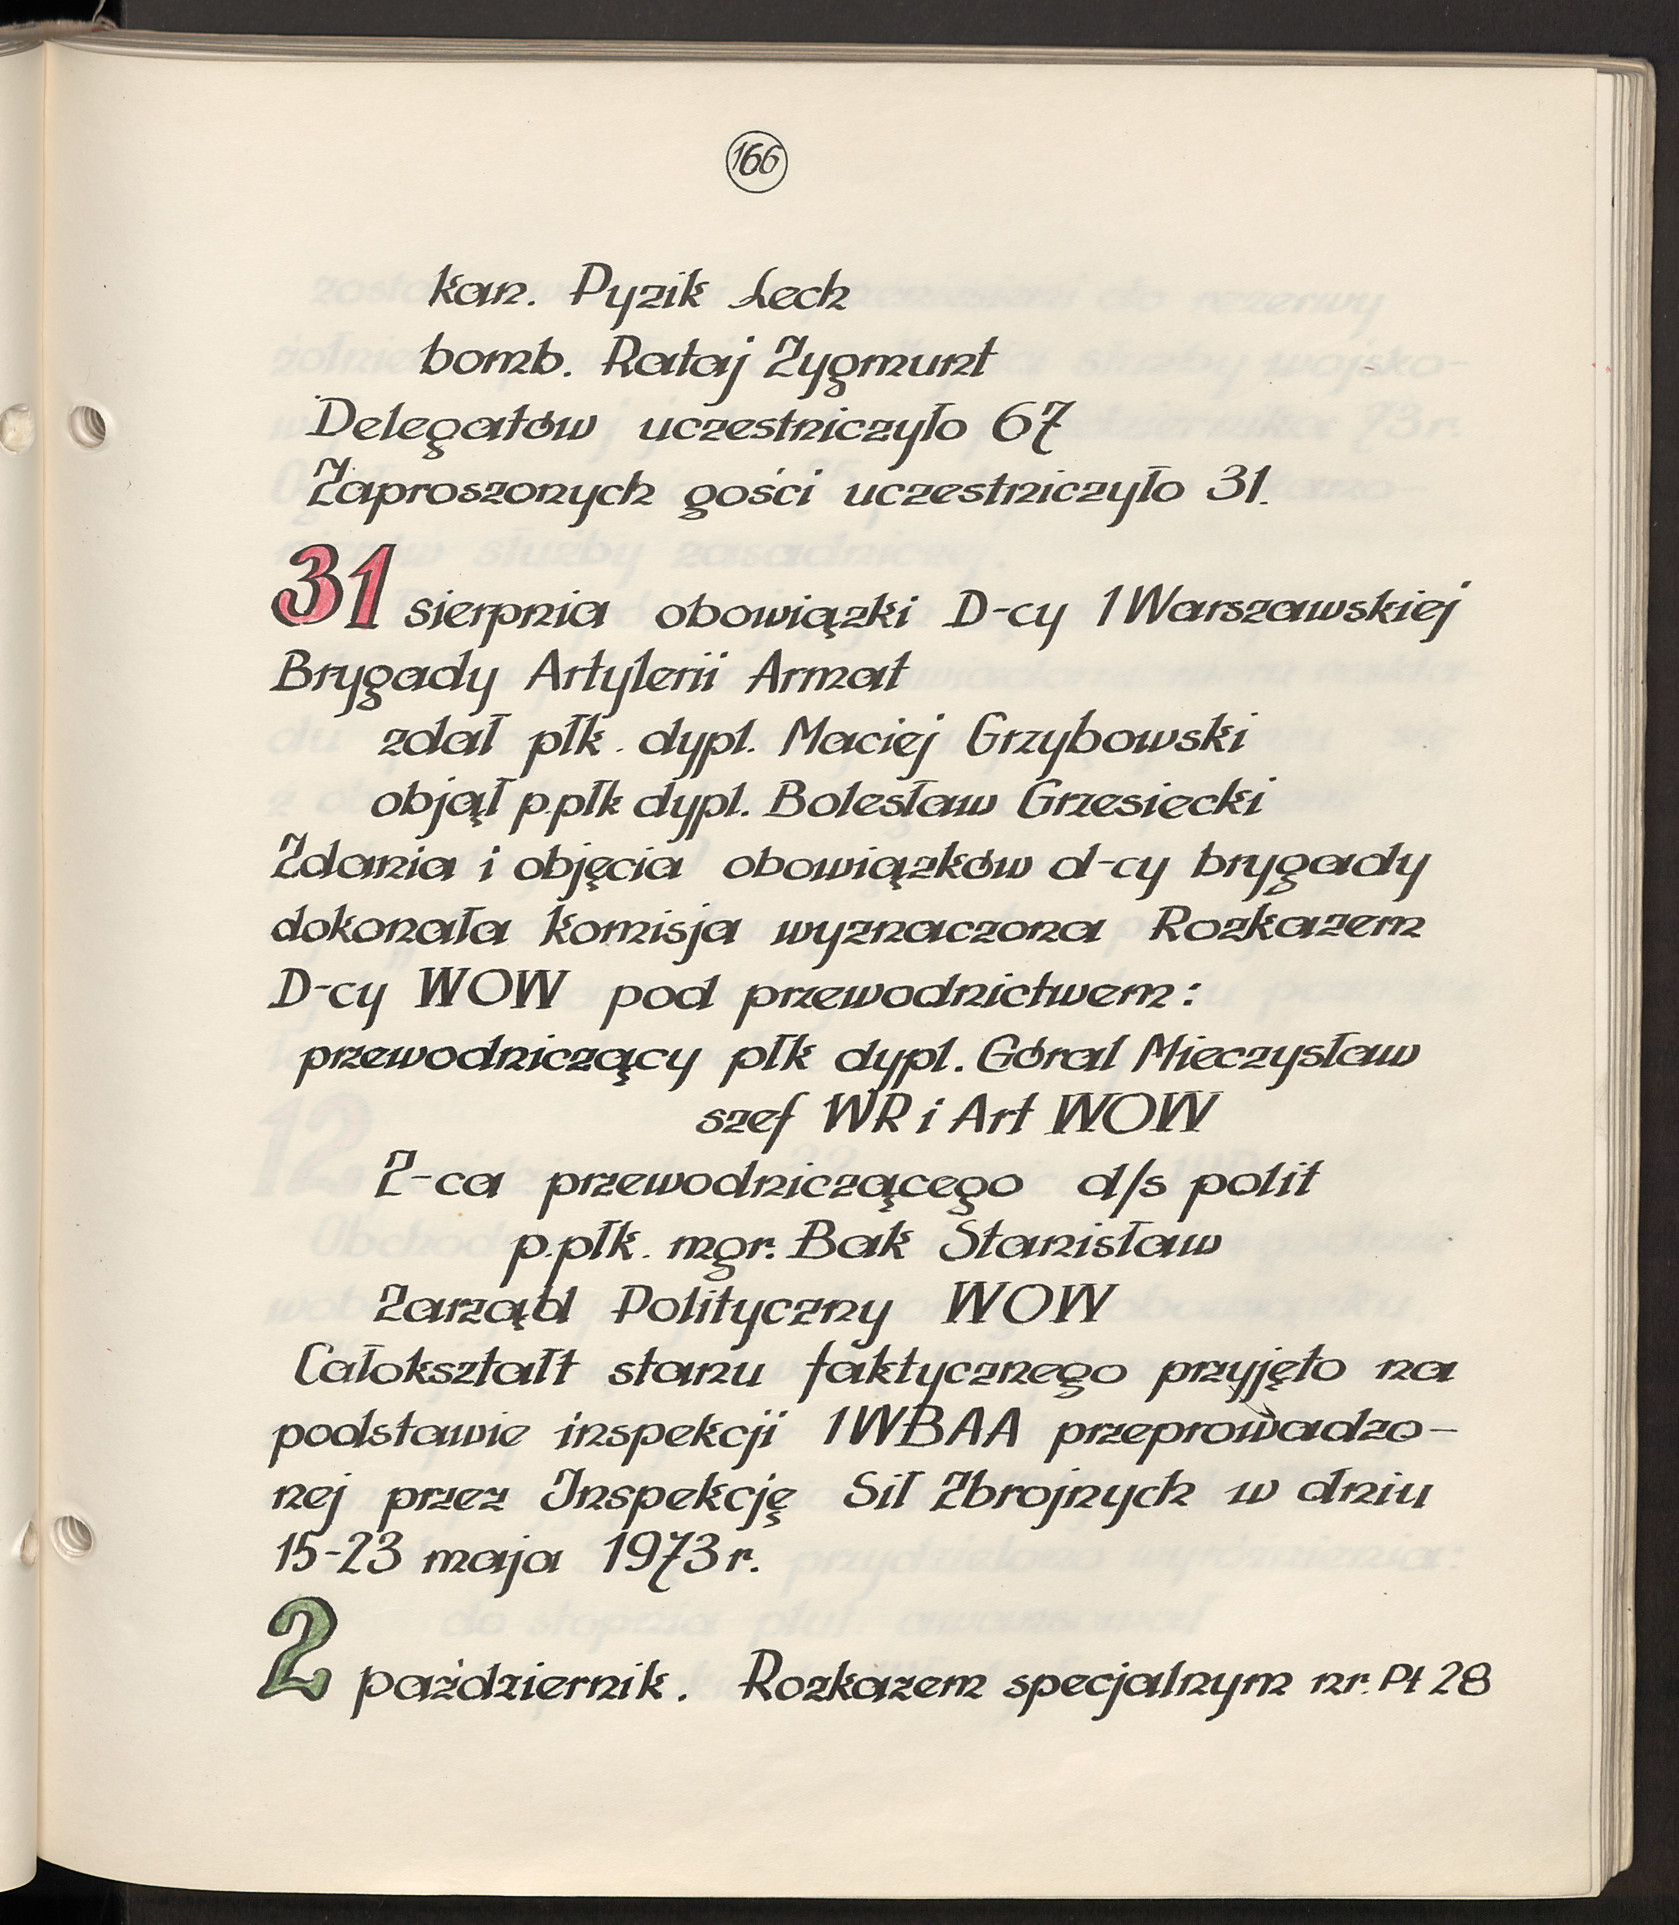 166
kan. Pyzik Lech
bomb. Rataj Zygmunt
Delegatów uczestniczyło 67
Zaproszonych gości uczestniczyło 31.
31 sierpnia obowiązki D-cy 1 Warszawskiej
Brygady Artylerii Armat
zdał płk. dypl. Maciej Grzybowski
objął p.płk dypl. Bolesław Grzesiecki
Zdania i objęcia obowiązków d-cy brygady
dokonała komisja wyznaczona Rozkazem
D-cy WOW pod przewodnictwem:
przewodniczący płk dypl. Góral Mieczysław
szef WR i Art WOW
Z-ca przewodniczącego d/s polit
p.płk. mgr. Bak Stanisław
Zarząd Polityczny WOW
Całokształt stanu faktycznego przyjęto na
podstawie inspekcji 1WBAA przeprowadzo-
nej przez Inspekcję Sił Zbrojnych w dniu
15-23 maja 1973r.
2 październik. Rozkazem specjalnym nr. Pt 28